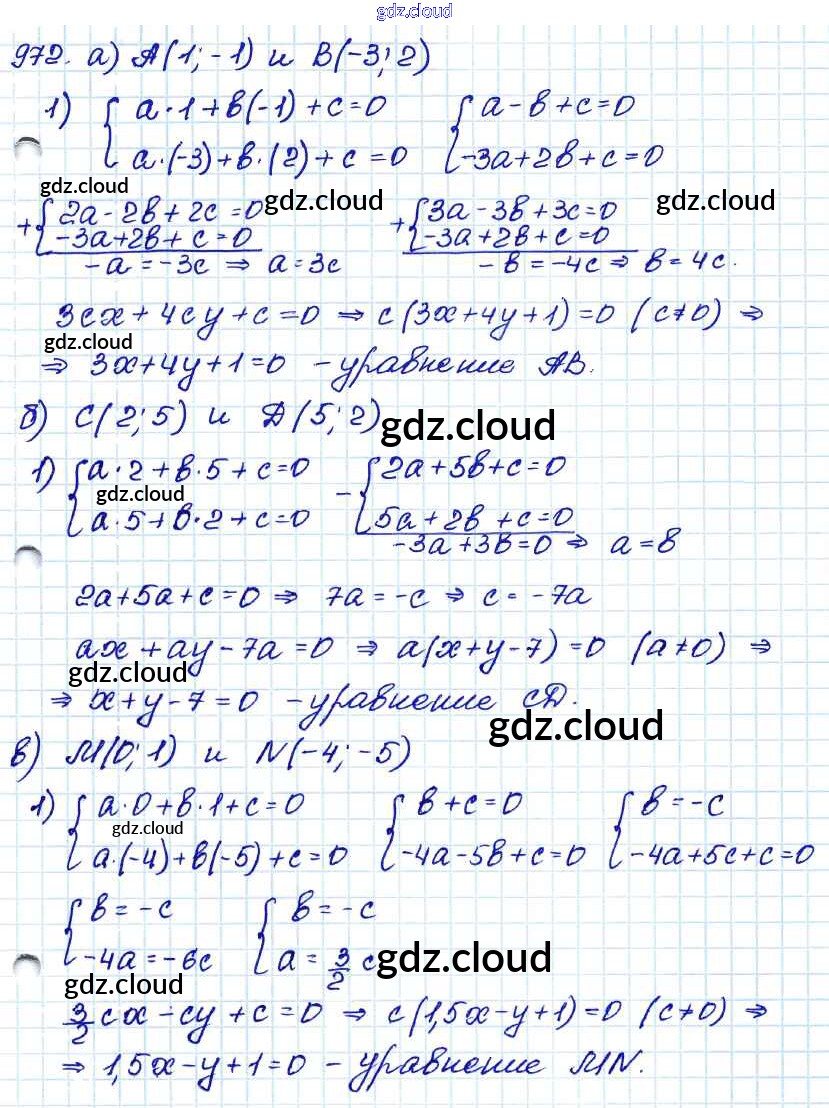 gdz.cloud
972. а) A(1; -1) и B(-3; 2)
1) { a·1+в(-1)+c=0 { a-в+c=0
a·(-3)+в·(2)+c=0 -3a+2в+c=0
gdz.cloud gdz.cloud gdz.cloud
+{ 2a-2в+2c=0 +{ 3a-3в+3c=0
-3a+2в+c=0 -3a+2в+c=0
-a=-3c ⇒ a=3c -в=-4c ⇒ в=4c.
3cx+4cy+c=0 ⇒ c(3x+4y+1)=0 (c≠0) ⇒
gdz.cloud
⇒ 3x+4y+1=0 - уравнение AB.
б) C(2; 5) и D(5; 2) gdz.cloud
1) { a·2+в·5+c=0 -{ 2a+5в+c=0
gdz.cloud
a·5+в·2+c=0 5a+2в+c=0
-3a+3в=0 ⇒ a=в
2a+5a+c=0 ⇒ 7a=-c ⇒ c=-7a
ax+ay-7a=0 ⇒ a(x+y-7)=0 (a≠0) ⇒
gdz.cloud
⇒ x+y-7=0 - уравнение CD.
gdz.cloud
в) M(0; 1) и N(-4; -5)
1) { a·0+в·1+c=0 { в+c=0 { в=-c
gdz.cloud
a·(-4)+в(-5)+c=0 -4a-5в+c=0 -4a+5c+c=0
{ в=-c { в=-c
-4a=-6c a=3/2 c gdz.cloud
gdz.cloud
3/2 cx-cy+c=0 ⇒ c(1,5x-y+1)=0 (c≠0) ⇒
⇒ 1,5x-y+1=0 - уравнение MN.